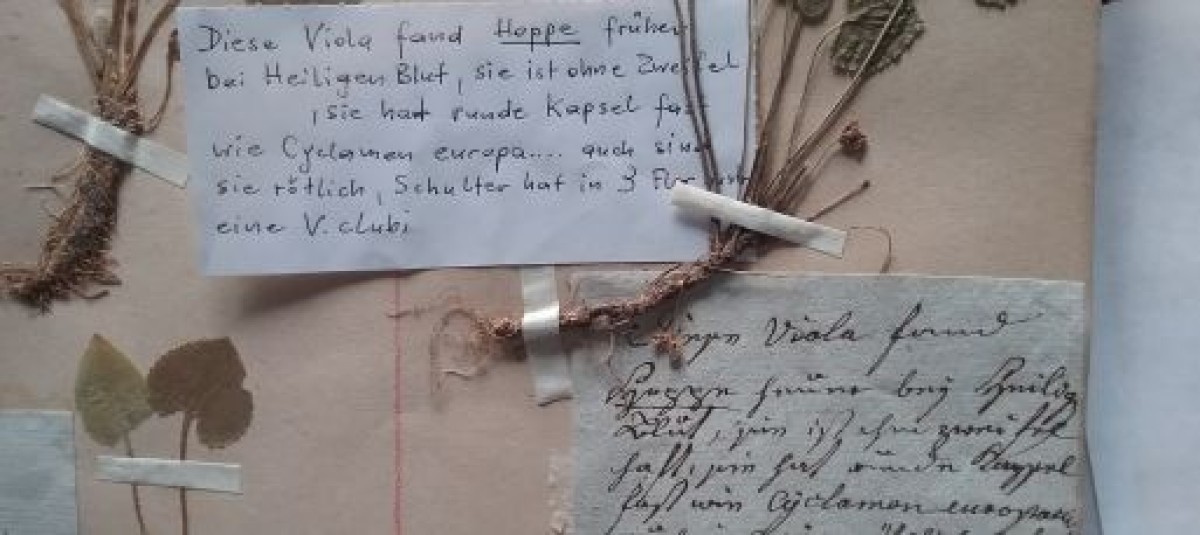 Diese Viola fand Hoppe früher
bei Heiligen Blut, sie ist ohne Zweifel
, sie hat runde Kapsel fast
wie Cyclamen europa.... auch sind
sie rötlich, Schulter hat in 3
eine V. clubi
Viola fand
Hoppe heuer bey Heilig
Blut, ist
haft, sie hat runde Kappel
fast wie Cyclamen europaeu